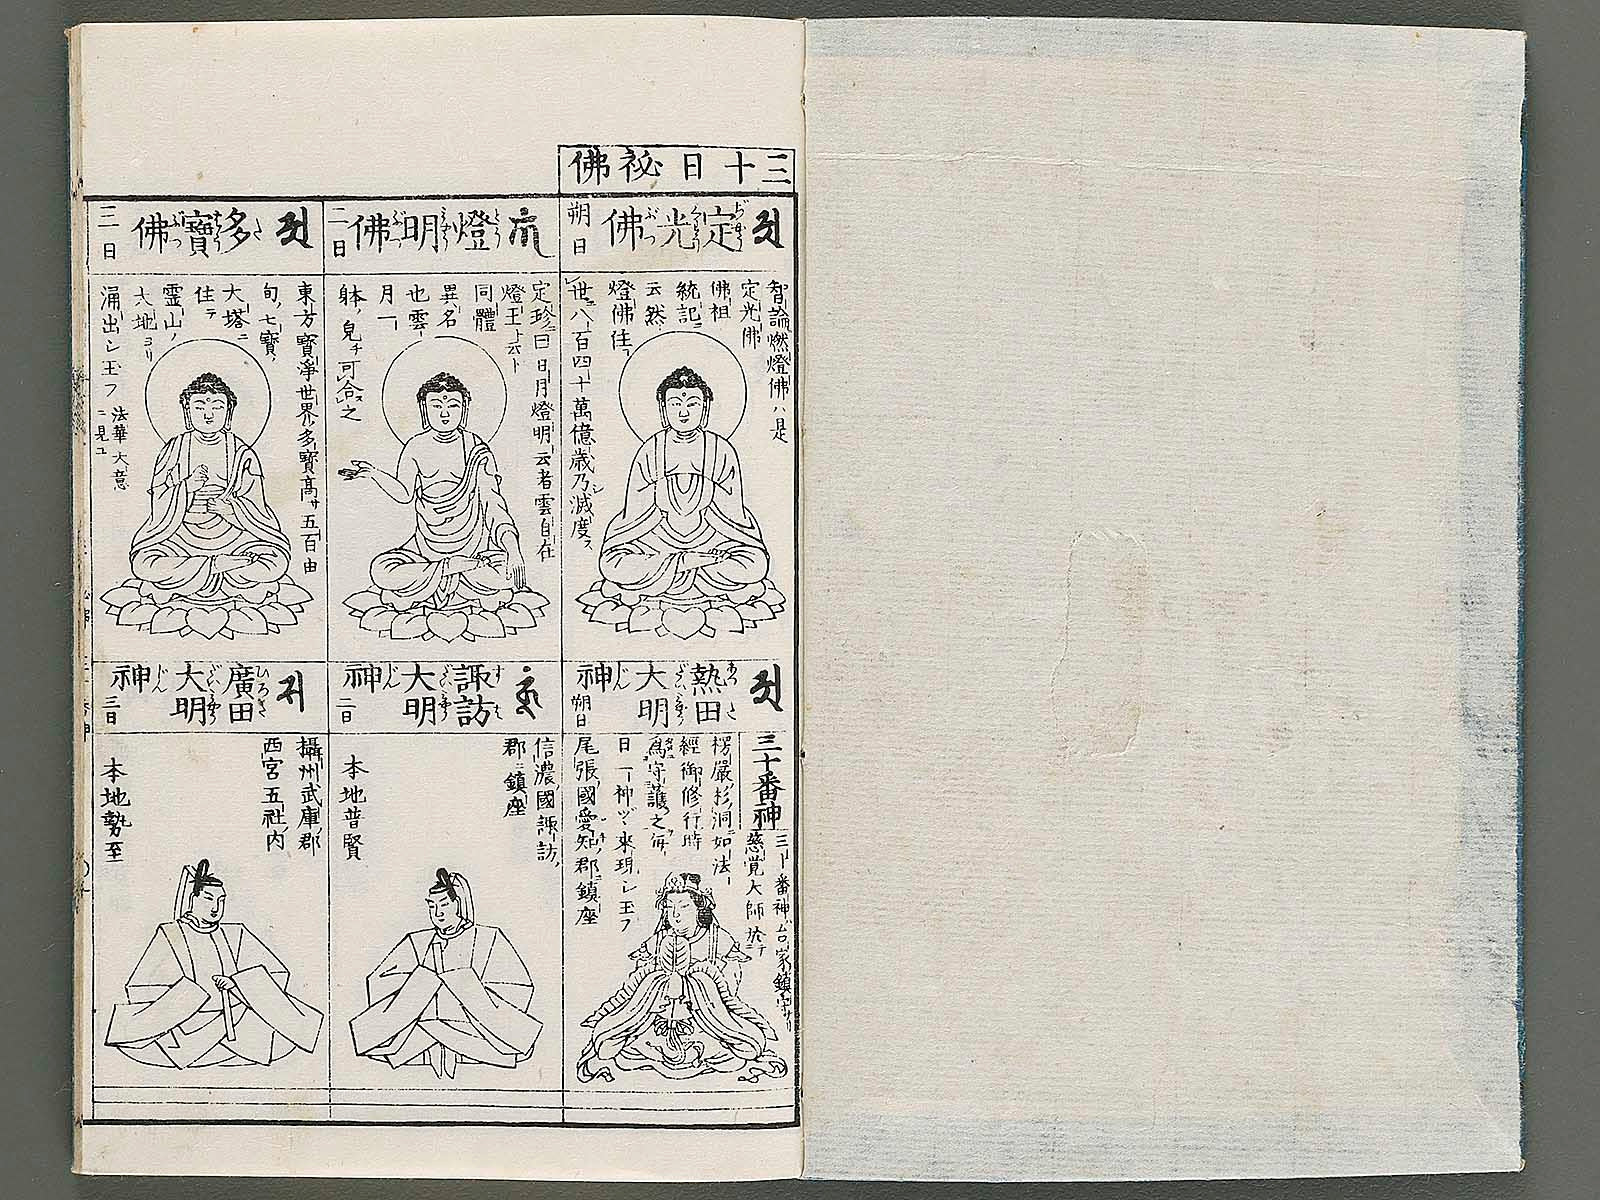 三十日祕佛
定光佛
ぶつ
朔日
智論燃燈佛ハ是
定光佛
佛祖
統記ニ
云然
燈佛住
世八百四十萬億歳乃滅度ス
燈明佛
とう
ぶつ
二日
定珍曰日月燈明云者雲自在
燈王ト云ト
同體
異名
也雲
月一
躰
可合之
多寶佛
た
ほう
ぶつ
三日
東方寶淨世界多寶高サ五百由
旬七寶ノ
大塔ニ
住テ
霊山ノ
大地ヨリ
涌出シ玉フ
法華大意
ニ見ユ
熱田大明神
あつた
じん
朔日
三十番神
三十番神ハ台家鎮守ナリ
慈覚大師於テ
楞嚴杉洞如法
經御修行時
為守護之毎
日一神ヅヽ来現シ玉フ
尾張國愛知郡鎮座
諏訪大明神
すは
じん
二日
信濃國諏訪
郡ニ鎮座
本地普賢
廣田大明神
ひろた
じん
三日
攝州武庫郡
西宮五社ノ内
本地勢至